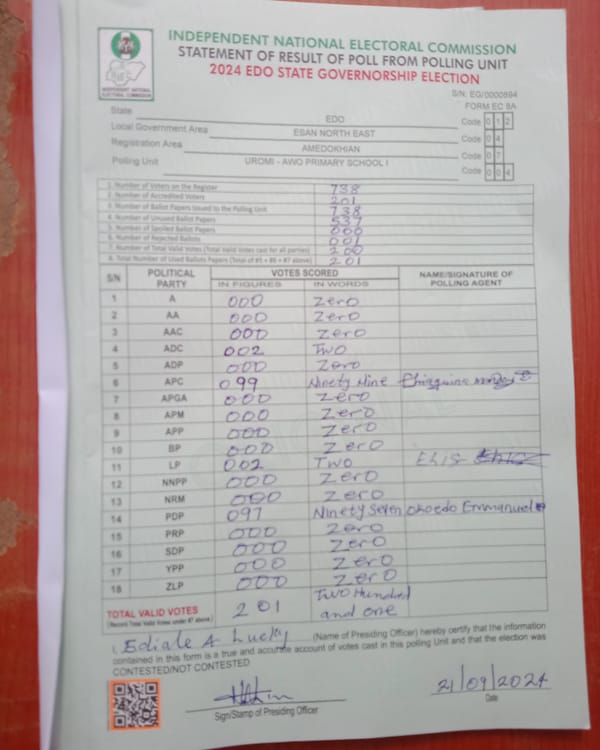 INDEPENDENT NATIONAL ELECTORAL COMMISSION
STATEMENT OF RESULT OF POLL FROM POLLING UNIT
2024 EDO STATE GOVERNORSHIP ELECTION
INDEPENDENT NATIONAL ELECTORAL COMMISSION
S/N: EG/0000894
FORM EC 8A
State EDO Code 0 1 2
Local Government Area ESAN NORTH EAST Code 0 4
Registration Area AMEDOKHIAN Code 0 7
Polling Unit UROMI - AWO PRIMARY SCHOOL I Code 0 0 4
1. Number of Voters on the Register 738
2. Number of Accredited Voters 201
3. Number of Ballot Papers Issued to the Polling Unit 738
4. Number of Unused Ballot Papers 537
5. Number of Spoiled Ballot Papers 000
6. Number of Rejected Ballots 001
7. Number of Total Valid Votes (Total Valid Votes cast for all parties) 200
8. Total Number of Used Ballots Papers (Total of #5 + #6 + #7 above) 201
S/N POLITICAL PARTY VOTES SCORED NAME/SIGNATURE OF POLLING AGENT
IN FIGURES IN WORDS
1 A 000 Zero
2 AA 000 Zero
3 AAC 000 Zero
4 ADC 002 Two
5 ADP 000 Zero
6 APC 099 Ninety Nine
7 APGA 000 Zero
8 APM 000 Zero
9 APP 000 Zero
10 BP 000 Zero
11 LP 002 Two
12 NNPP 000 Zero
13 NRM 000 Zero
14 PDP 097 Ninety Seven Okoedo Emmanuel
15 PRP 000 Zero
16 SDP 000 Zero
17 YPP 000 Zero
18 ZLP 000 Zero
TOTAL VALID VOTES 201 Two Hundred and one
(Record Total Valid Votes under #7 above.)
I, Ediale A Lucky (Name of Presiding Officer) hereby certify that the information
contained in this form is a true and accurate account of votes cast in this polling Unit and that the election was
CONTESTED/NOT CONTESTED
21/09/2024
Sign/Stamp of Presiding Officer Date